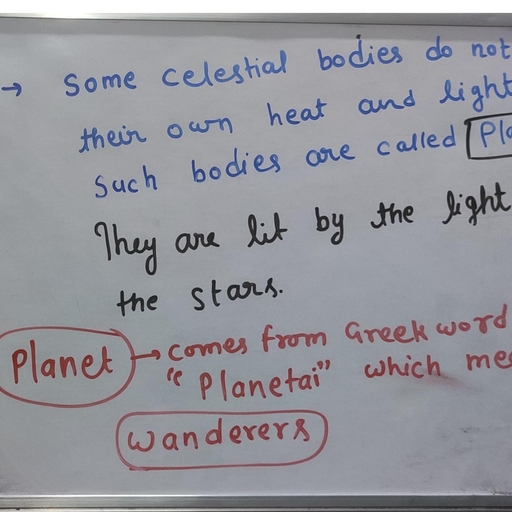 → Some celestial bodies do not
their own heat and light
Such bodies are called Pla
They are lit by the light
the stars.
Planet → comes from Greek word
"Planetai" which mea
wanderers